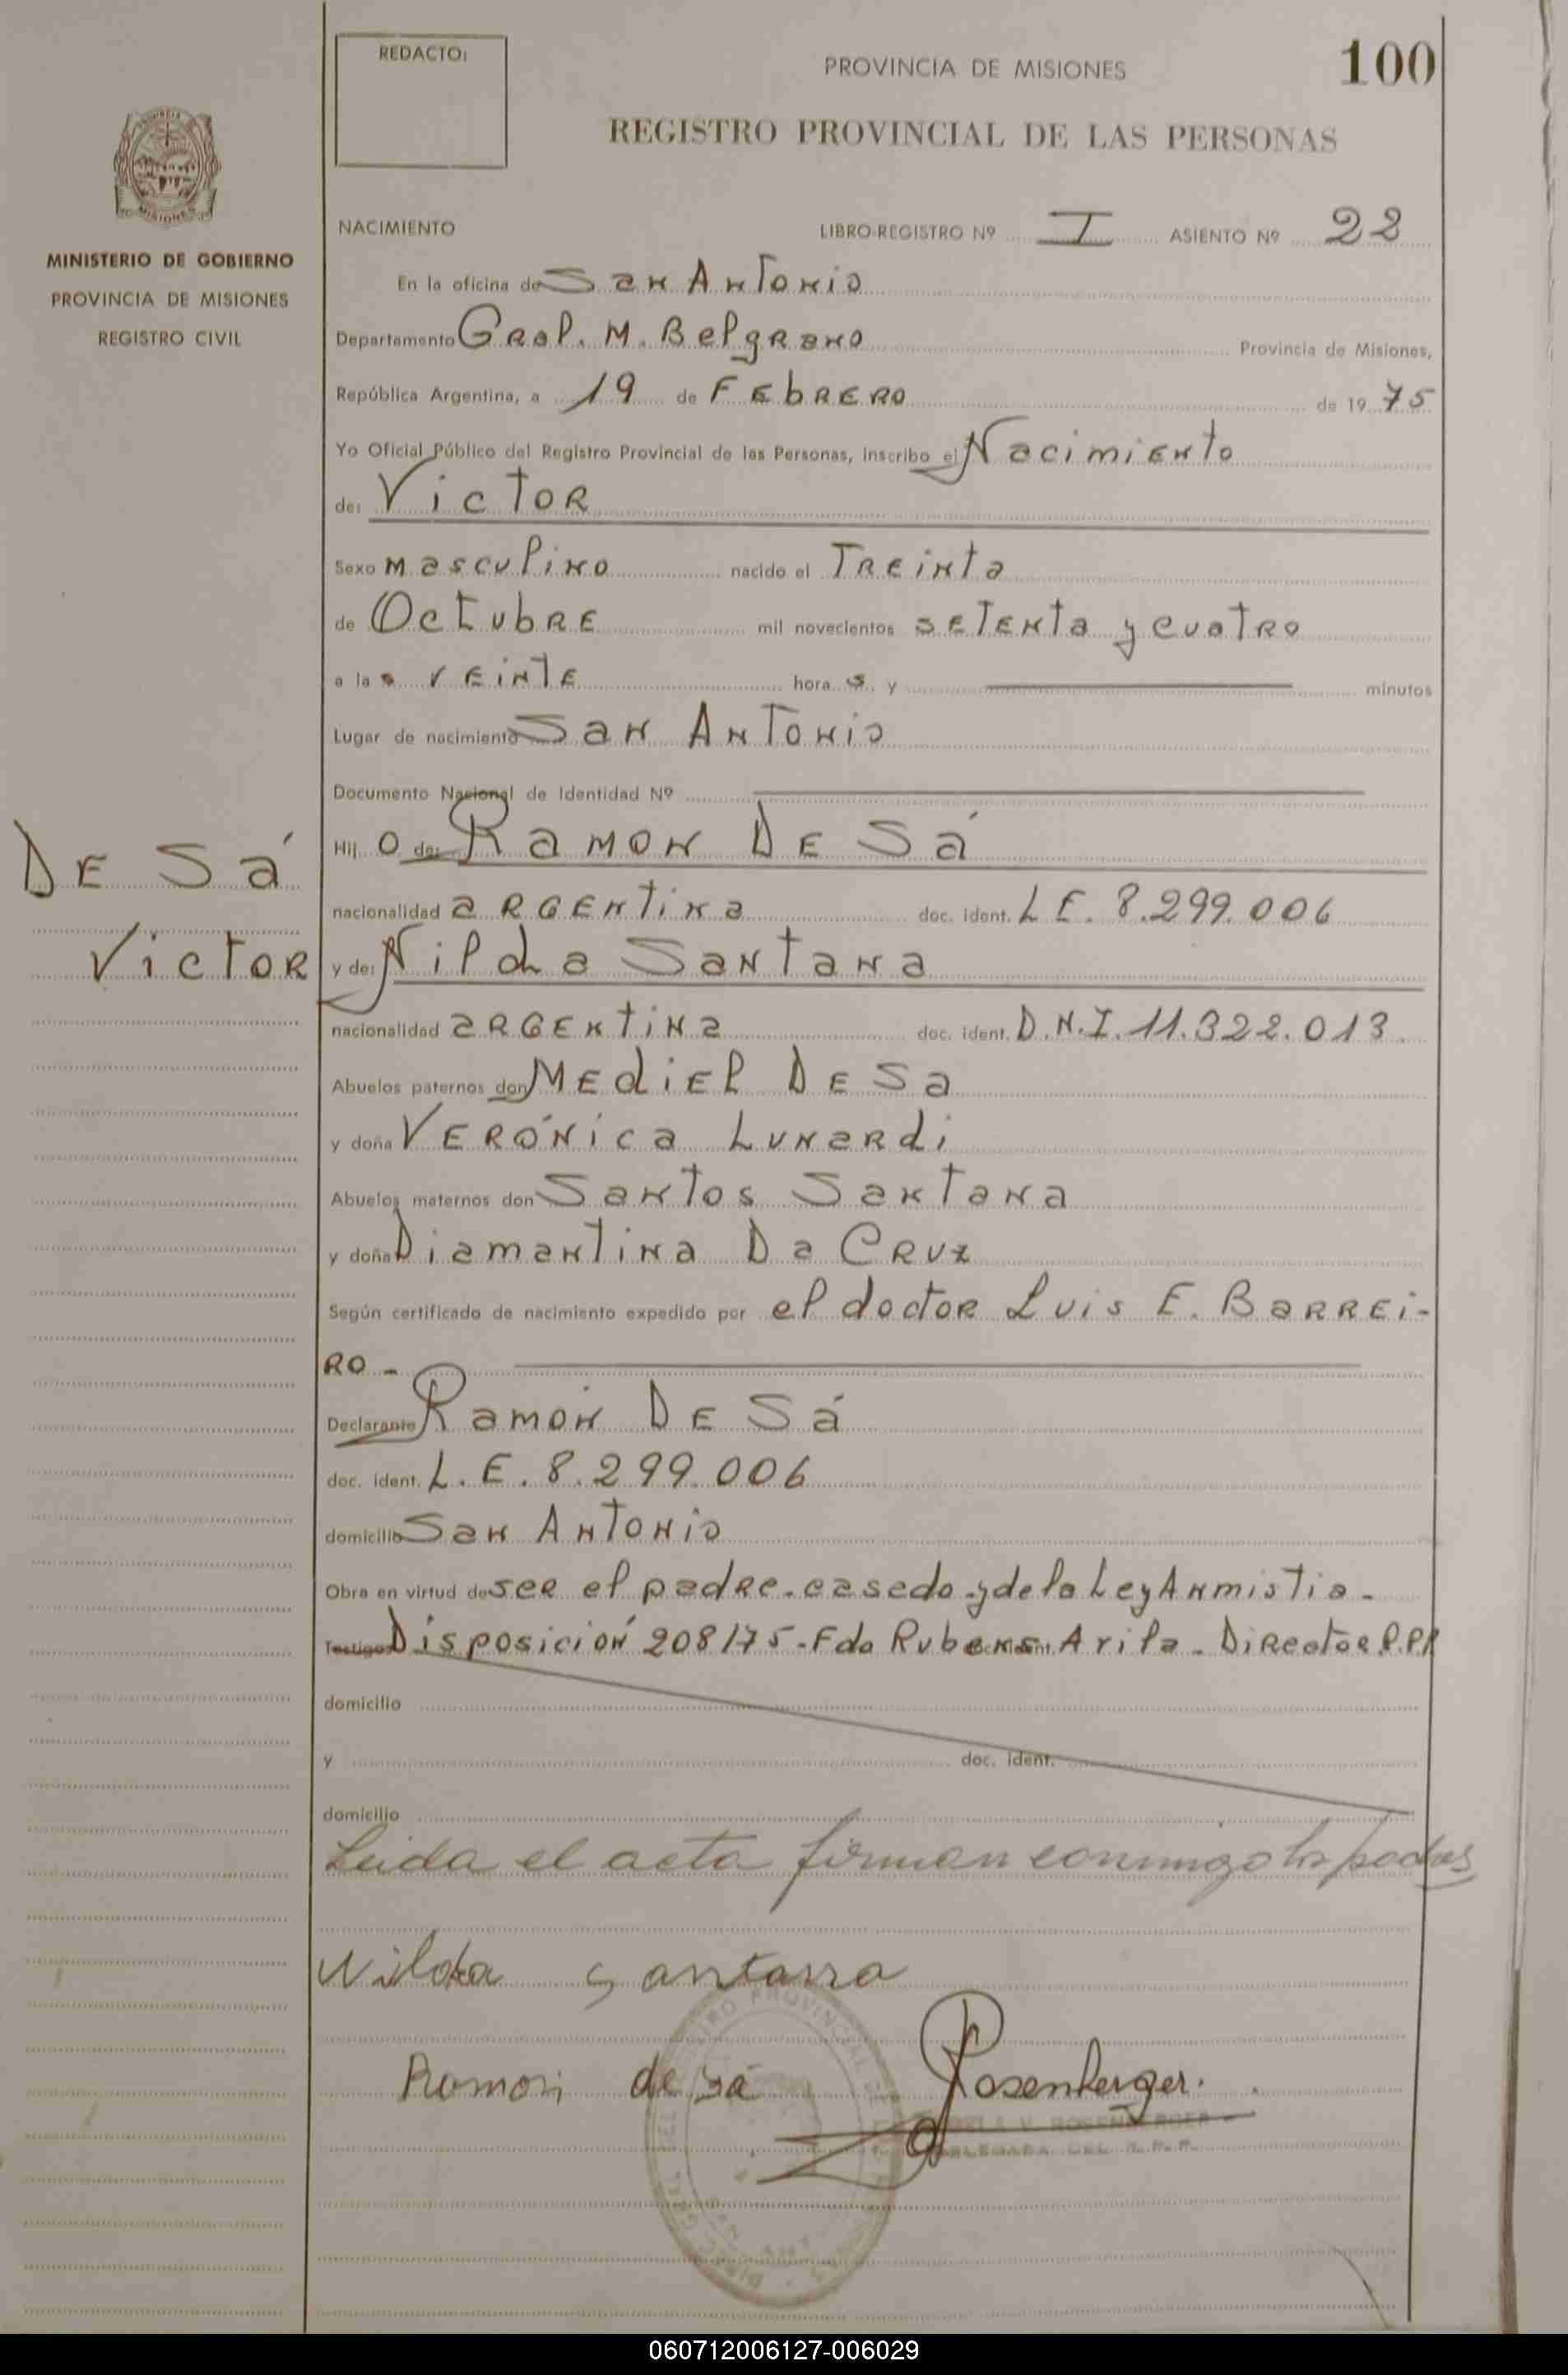 REDACTO:
PROVINCIA DE MISIONES
100
REGISTRO PROVINCIAL DE LAS PERSONAS
MISIONES
MINISTERIO DE GOBIERNO
PROVINCIA DE MISIONES
REGISTRO CIVIL
NACIMIENTO LIBRO-REGISTRO Nº I ASIENTO Nº 22
En la oficina de San Antonio
Departamento Gral. M. Belgrano Provincia de Misiones,
República Argentina, a 19 de FEbRERO de 1975
Yo Oficial Público del Registro Provincial de las Personas, inscribo el Nacimiento
de: Victor
Sexo masculino nacido el Treinta
de Octubre mil novecientos setenta y cuatro
a las veinte horas y minutos
Lugar de nacimiento San Antonio
Documento Nacional de Identidad Nº
Hijo de: Ramon De Sá
DE Sá
Victor
nacionalidad argentina doc. ident. L E. 8.299.006
y de: Nilda Santana
nacionalidad argentina doc. ident. D.N.I. 11.322.013
Abuelos paternos don Mediel De Sa
y doña Verónica Lunardi
Abuelos maternos don Santos Santana
y doña Diamantina Da Cruz
Según certificado de nacimiento expedido por el doctor Luis E. Barrei-
ro -
Declarante Ramón De Sá
doc. ident. L. E. 8.299.006
domicilio San Antonio
Obra en virtud de ser el padre. casado y de la Ley Anmistia -
Testigos Disposición 208/75 - Fdo Rubens Arila - Director R.P.P.
domicilio
y doc. ident.
domicilio
Leida el acta firman conmigo los padres
Nilda Santana
Ramon de sa Rosenberger.
V. ROSENBERGER
DELEGADA DEL R.P.P.
060712006127-006029